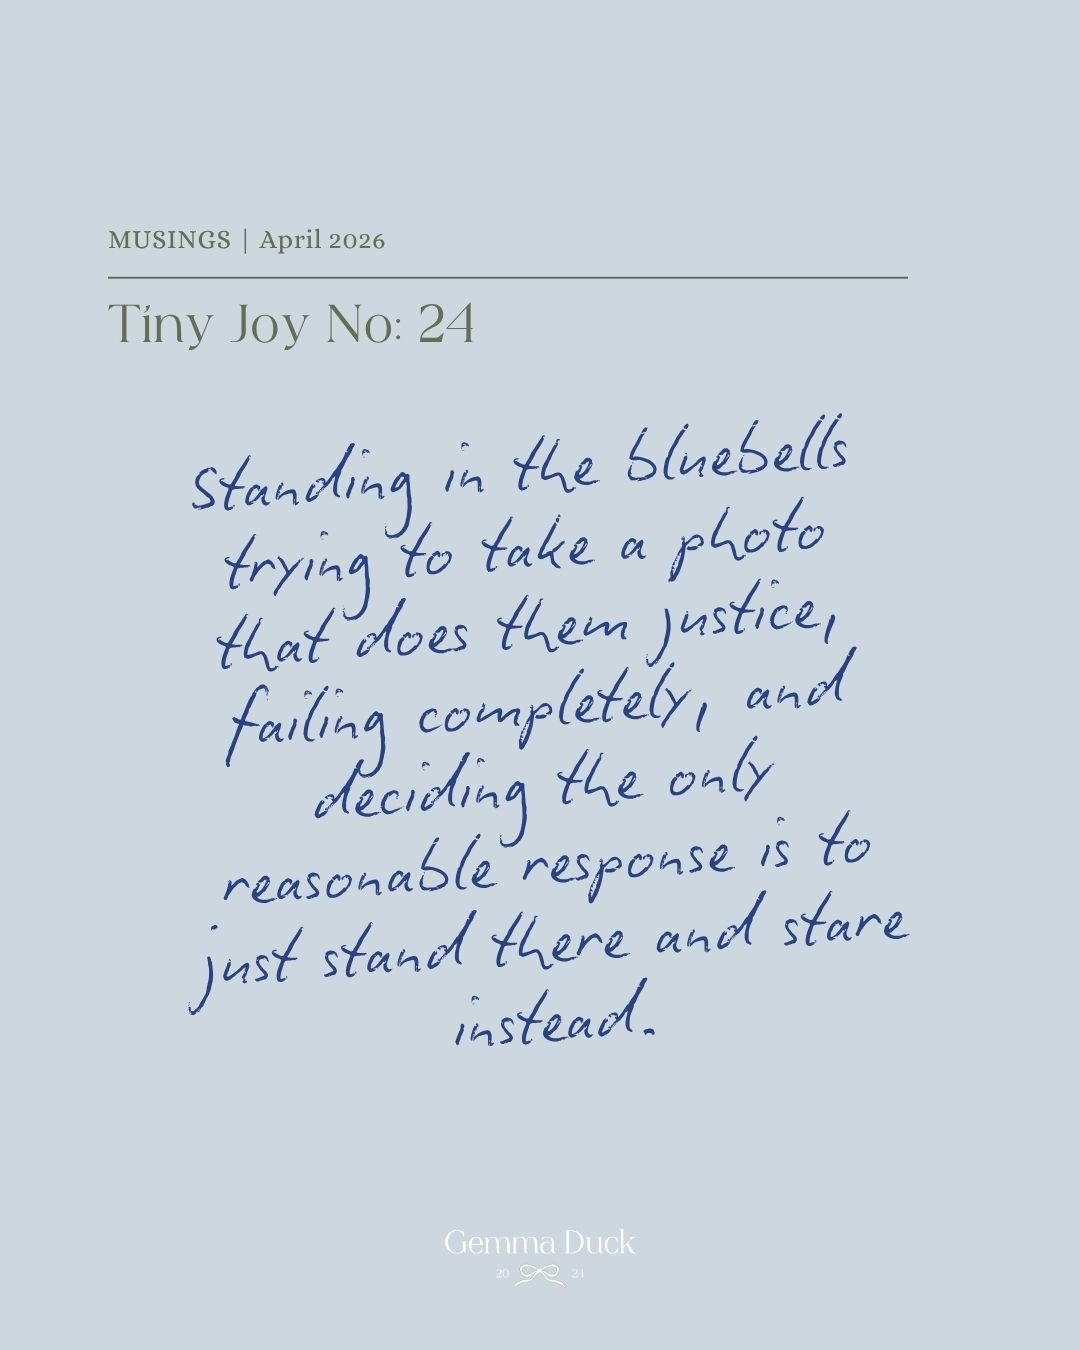 MUSINGS | April 2026
Tiny Joy No: 24
Standing in the bluebells
trying to take a photo
that does them justice,
failing completely, and
deciding the only
reasonable response is to
just stand there and stare
instead.
Gemma Duck
20 24